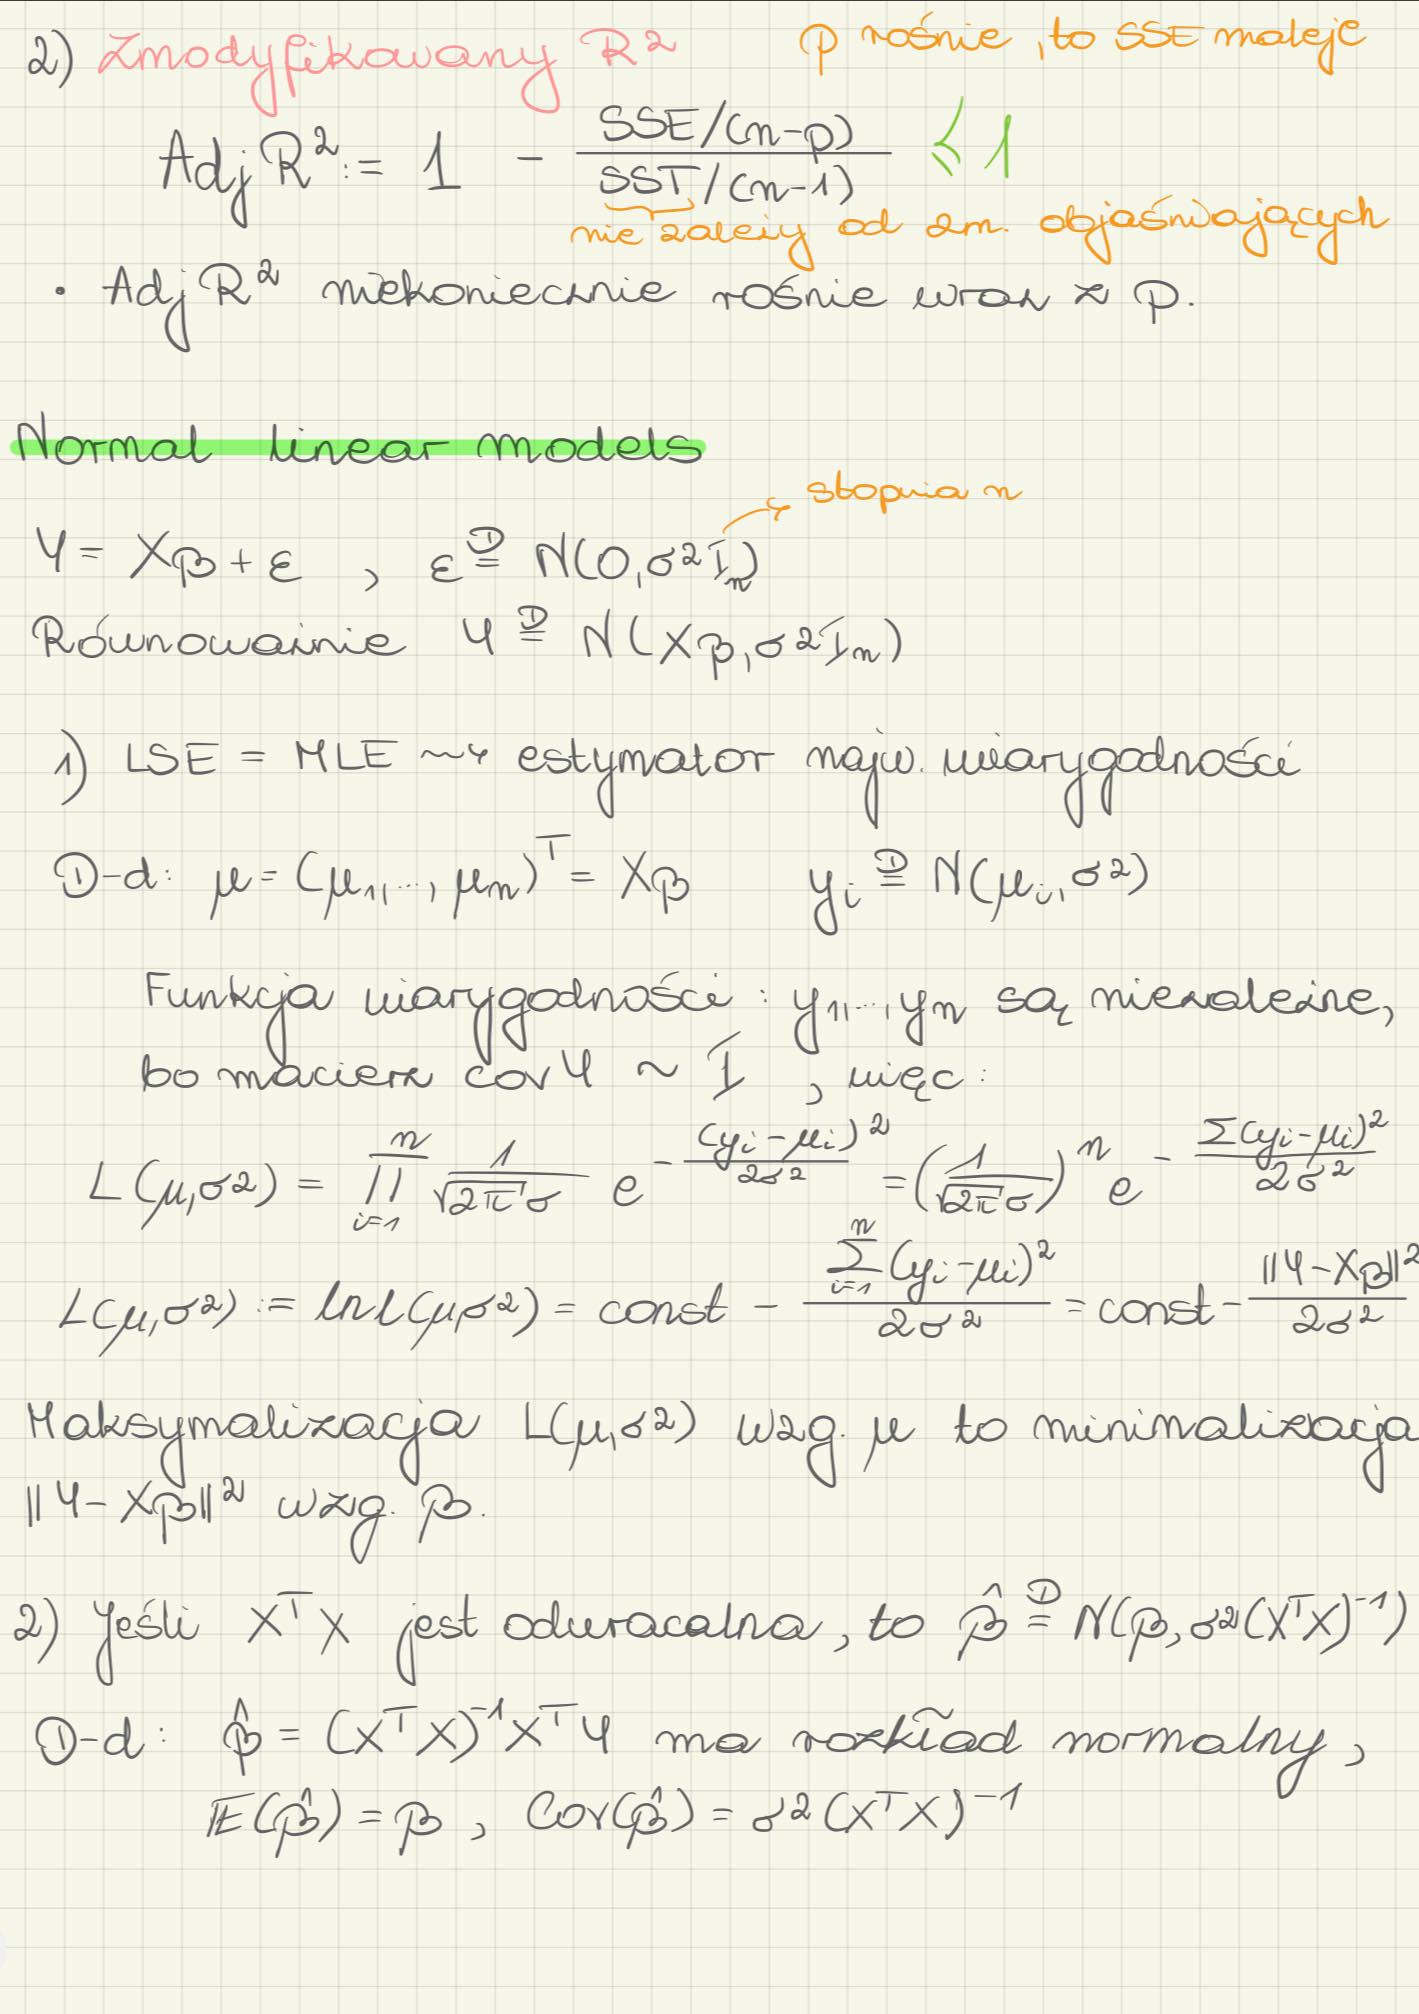 2) Zmodyfikowany R² p rośnie, to SSE maleje
Adj R² := 1 - (SSE/(n-p)) / (SST/(n-1)) ≤ 1
nie zależy od zm. objaśniających
• Adj R² niekoniecznie rośnie wraz z p.
Normal linear models
stopnia n
Y = Xβ + ε , ε =ᴰ N(0, σ² Iₙ)
Równoważnie Y =ᴰ N(Xβ, σ² Iₙ)
1) LSE = MLE ⇝ estymator najw. wiarygodności
D-d: μ = (μ₁,..., μₙ)ᵀ = Xβ yᵢ =ᴰ N(μᵢ, σ²)
Funkcja wiarygodności: y₁,..., yₙ są niezależne,
bo macierz cov Y ~ I , więc:
L(μ, σ²) = ∏ᵢ₌₁ⁿ 1/(√(2π) σ) e^(-(yᵢ-μᵢ)²/(2σ²)) = (1/(√(2π) σ))ⁿ e^(-Σ(yᵢ-μᵢ)²/(2σ²))
L(μ, σ²) := ln l(μ, σ²) = const - Σᵢ₌₁ⁿ(yᵢ-μᵢ)²/(2σ²) = const - ‖Y-Xβ‖²/(2σ²)
Maksymalizacja L(μ, σ²) wzg. μ to minimalizacja
‖Y-Xβ‖² wzg. β.
2) Jeśli XᵀX jest odwracalna, to β̂ =ᴰ N(β, σ²(XᵀX)⁻¹)
D-d: β̂ = (XᵀX)⁻¹XᵀY ma rozkład normalny,
E(β̂) = β , Cov(β̂) = σ²(XᵀX)⁻¹